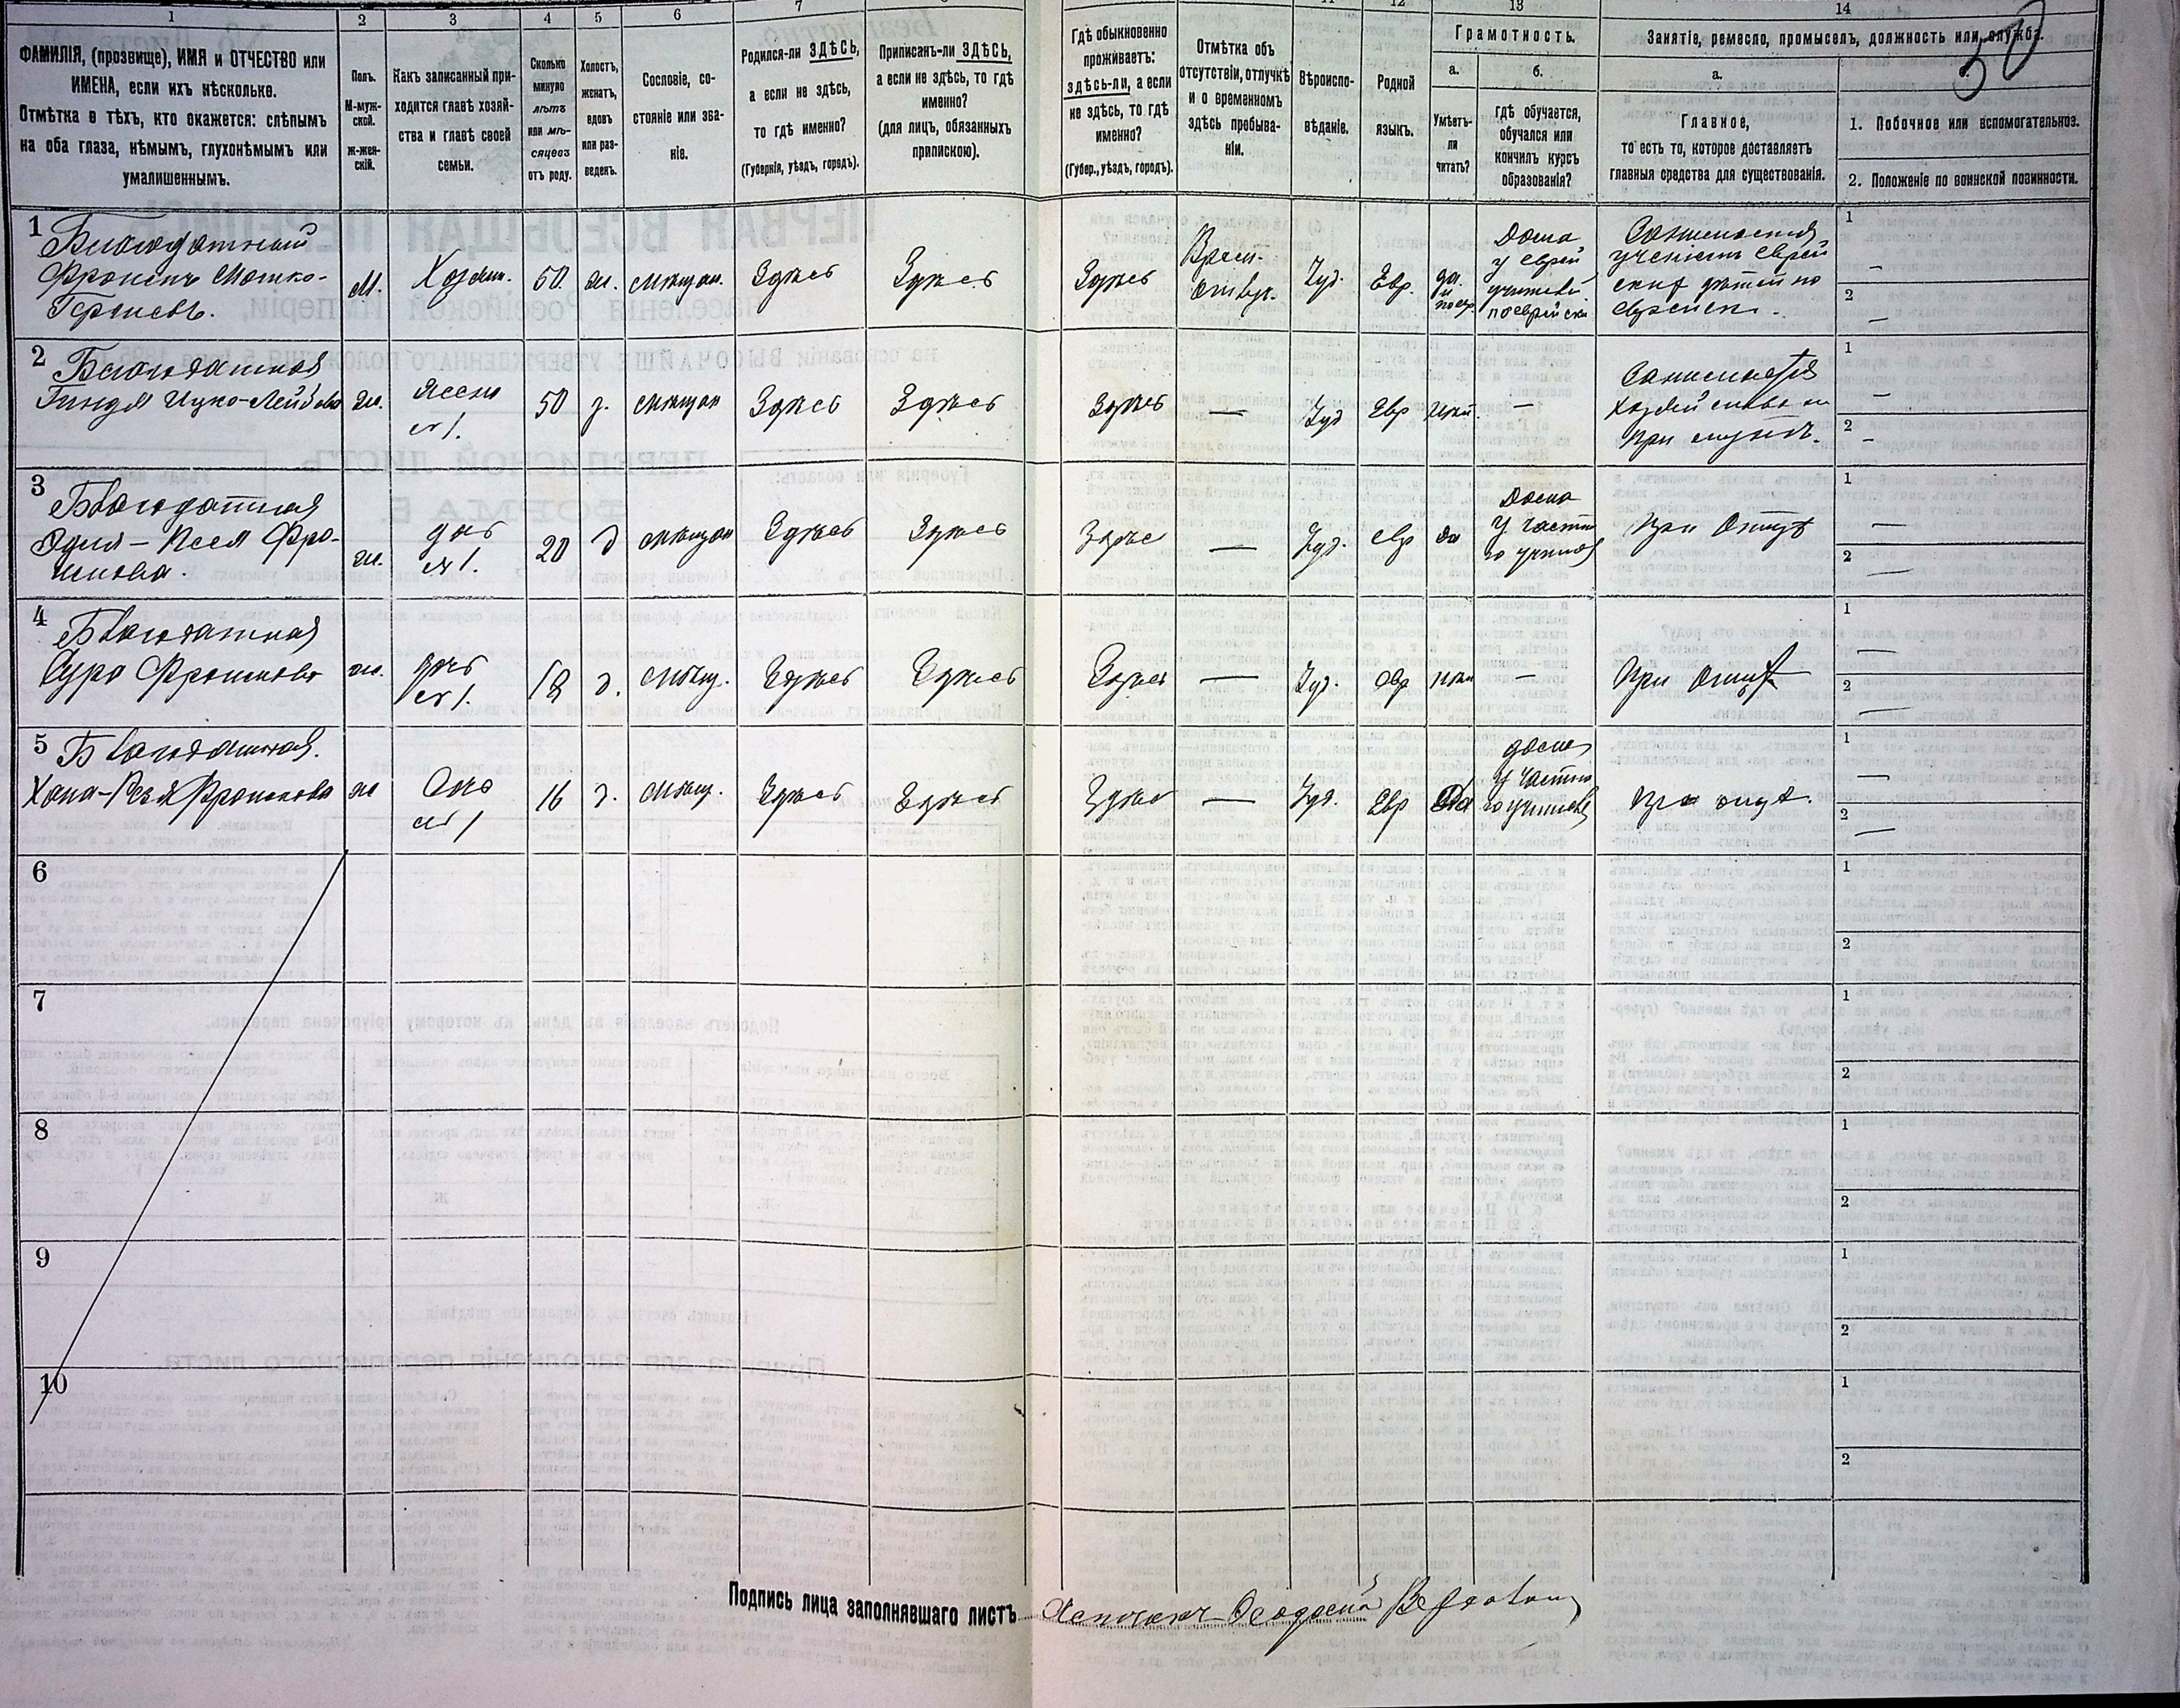 1 2 3 4 5 6 7
12 13 14
ФАМИЛІЯ, (прозвище), ИМЯ и ОТЧЕСТВО или
ИМЕНА, если ихъ нѣсколько.
Отмѣтка о тѣхъ, кто окажется: слѣпымъ
на оба глаза, нѣмымъ, глухонѣмымъ или
умалишеннымъ.
Полъ.
М-муж-
ской.
Ж-жен-
скій.
Какъ записанный при-
ходится главѣ хозяй-
ства и главѣ своей
семьи.
Сколько
минуло
лѣтъ
или мѣ-
сяцевъ
отъ роду.
Холостъ,
женатъ,
вдовъ
или раз-
веденъ.
Сословіе, со-
стояніе или зва-
ніе.
Родился-ли ЗДѢСЬ,
а если не здѣсь,
то гдѣ именно?
(Губернія, уѣздъ, городъ).
Приписанъ-ли ЗДѢСЬ,
а если не здѣсь, то гдѣ
именно?
(для лицъ, обязанныхъ
припискою).
Гдѣ обыкновенно
проживаетъ:
здѣсь-ли, а если
не здѣсь, то гдѣ
именно?
(Губер., уѣздъ, городъ).
Отмѣтка объ
отсутствіи, отлучкѣ
и о временномъ
здѣсь пребыва-
ніи.
Вѣроиспо-
вѣданіе.
Родной
языкъ.
Грамотность.
а.
Умѣетъ-
ли
читать?
б.
гдѣ обучается,
обучался или
кончилъ курсъ
образованія?
Занятіе, ремесло, промыселъ, должность или служба.
50
а.
Главное,
то есть то, которое доставляетъ
главныя средства для существованія.
1. Побочное или вспомогательное.
2. Положеніе по воинской повинности.
1
Благодатный
Фроимъ Мошко-
Гершевъ.
М. Хозяин. 50. ж. мѣщан. Здѣсь Здѣсь
Здѣсь
Врем.
отлуч.
Іуд. Евр.
да.
и
по евр.
Дома
у еврей
учителя
по еврейски
Занимается
ученіемъ еврей
скиъ дѣтей по
еврейски.
1 –
2 –
2
Благодатная
Гиндля Ицко-Лейбова
ж.
жена
гл 1.
50 з. мѣщан Здѣсь Здѣсь
Здѣсь — Іуд Евр нѣт. –
Занимается
хозяйством
при мужѣ.
1 –
2 –
3
Благодатная
Песя Фро-
имова.
ж.
дочь
гл 1.
20 д мѣщан Здѣсь Здѣсь
Здѣсь — Іуд. евр да
Дома
у частн
го учителя
при отцѣ
1 —
2 —
4
Благодатная
Сура Фроимова
ж.
дочь
гл 1.
18 д. мѣщ. Здѣсь Здѣсь
Здѣсь — Іуд. евр нѣт –
При отцѣ
1 —
2 —
5
Благодатная.
Хана-Рейзя Фроимова
ж
дочь
гл 1
16 д. мѣщ. Здѣсь Здѣсь
Здѣсь — Іуд. Евр да
дома
у частно
го учителя
при отцѣ.
1 —
2 —
6
1
2
7
1
2
8
1
2
9
1
2
10
1
2
Подпись лица заполнявшаго листъ